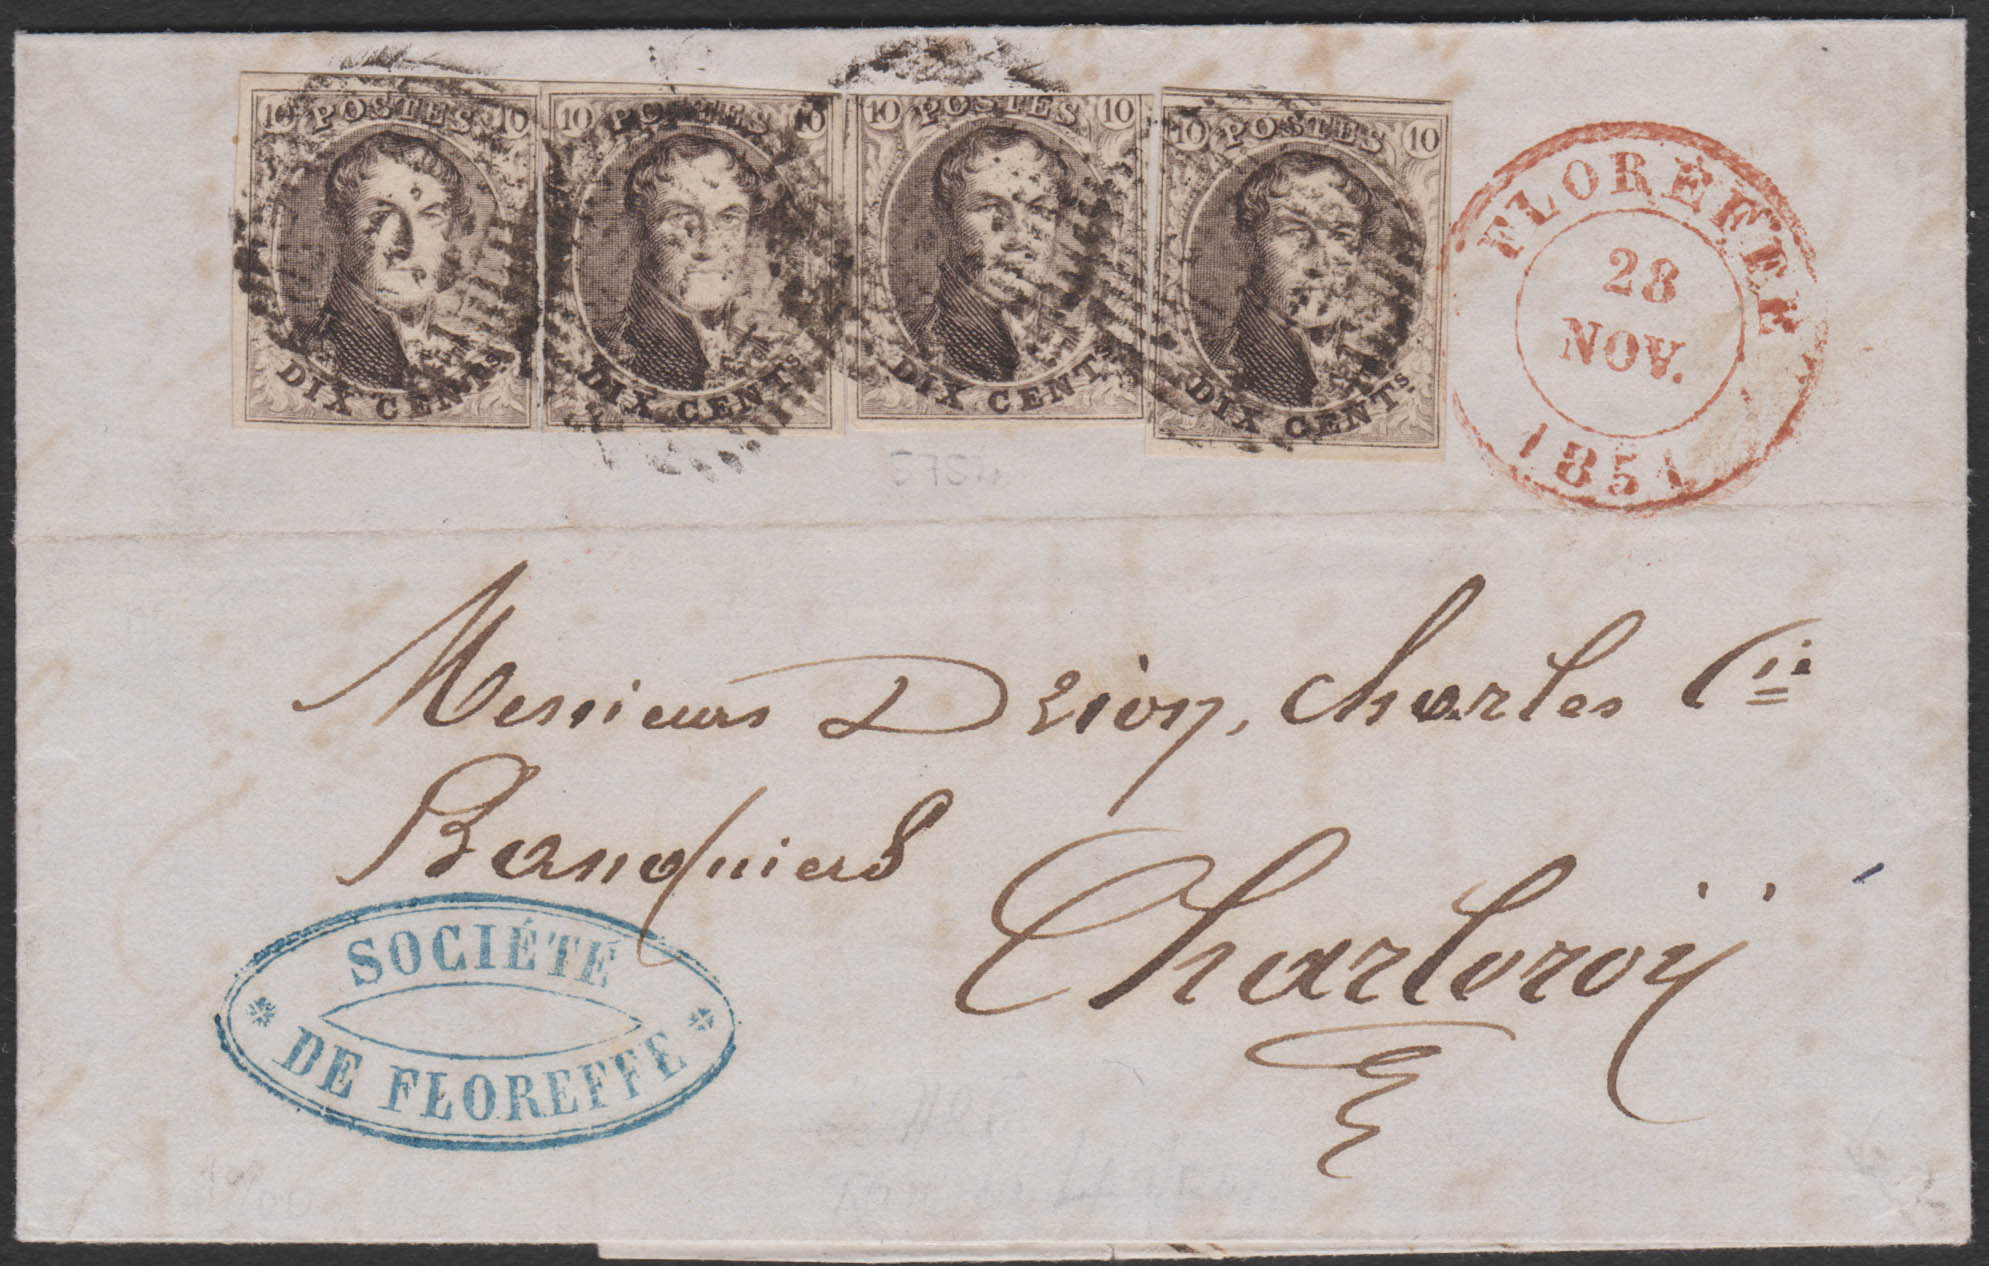 10 POSTES 10
DIX CENTS
10 POSTES 10
DIX CENTS
10 POSTES 10
DIX CENTS
10 POSTES 10
DIX CENTS
FLOREFFE
28
NOV.
1851
Messieurs Drion, Charles Cie
Banquiers
Charleroÿ
SOCIÉTÉ
DE FLOREFFE